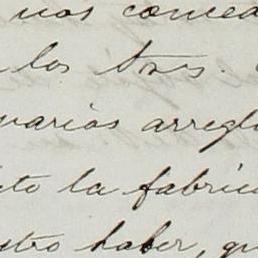 nos comed
los tres.
varias arregl
to la fabric
stro haber, qu